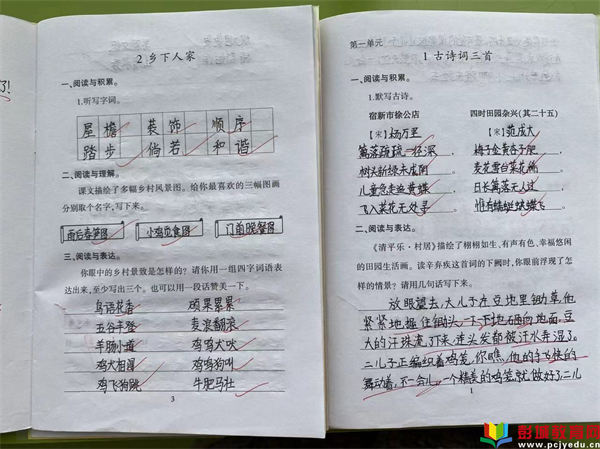 了!
2 乡下人家
一、阅读与积累。
1.听写字词。
屋檐 装饰 顺序
踏步 倘若 和谐
二、阅读与理解。
课文描绘了多幅乡村风景图。给你最喜欢的三幅图画
分别取个名字,写下来。
雨后春笋图 小鸡觅食图 门前晚餐图
三、阅读与表达。
你眼中的乡村景致是怎样的?请你用一组四字词语表
达出来,至少写出三个。也可以用一段话赞美一下。
鸟语花香 硕果累累
五谷丰登 麦浪翻滚
羊肠小道 鸡鸣犬吠
鸡犬相闻 鸡鸣狗叫
鸡飞狗跳 牛肥马壮
3
第一单元
1 古诗词三首
一、阅读与积累。
1.默写古诗。
宿新市徐公店 四时田园杂兴(其二十五)
[宋]杨万里 [宋]范成大
篱落疏疏一径深, 梅子金黄杏子肥,
树头新绿未成阴。 麦花雪白菜花稀。
儿童急走追黄蝶, 日长篱落无人过,
飞入菜花无处寻。 惟有蜻蜓蛱蝶飞。
二、阅读与表达。
《清平乐·村居》描绘了栩栩如生、有声有色、幸福悠闲
的田园生活画。读辛弃疾这首词的下阕时,你眼前浮现了怎
样的情景?请用几句话写下来。
放眼望去,大儿子在豆地里锄草,他
紧紧地握住锄头,一下下地石砸向地面,豆
大的汗珠流下来,连头发都被汗水弄湿了。
二儿子正编织着鸡笼,你瞧,他的手飞快的
舞动着,不一会儿,一个精美的鸡笼就做好了,二儿
1
彭城教育网
www.pcjyedu.cn